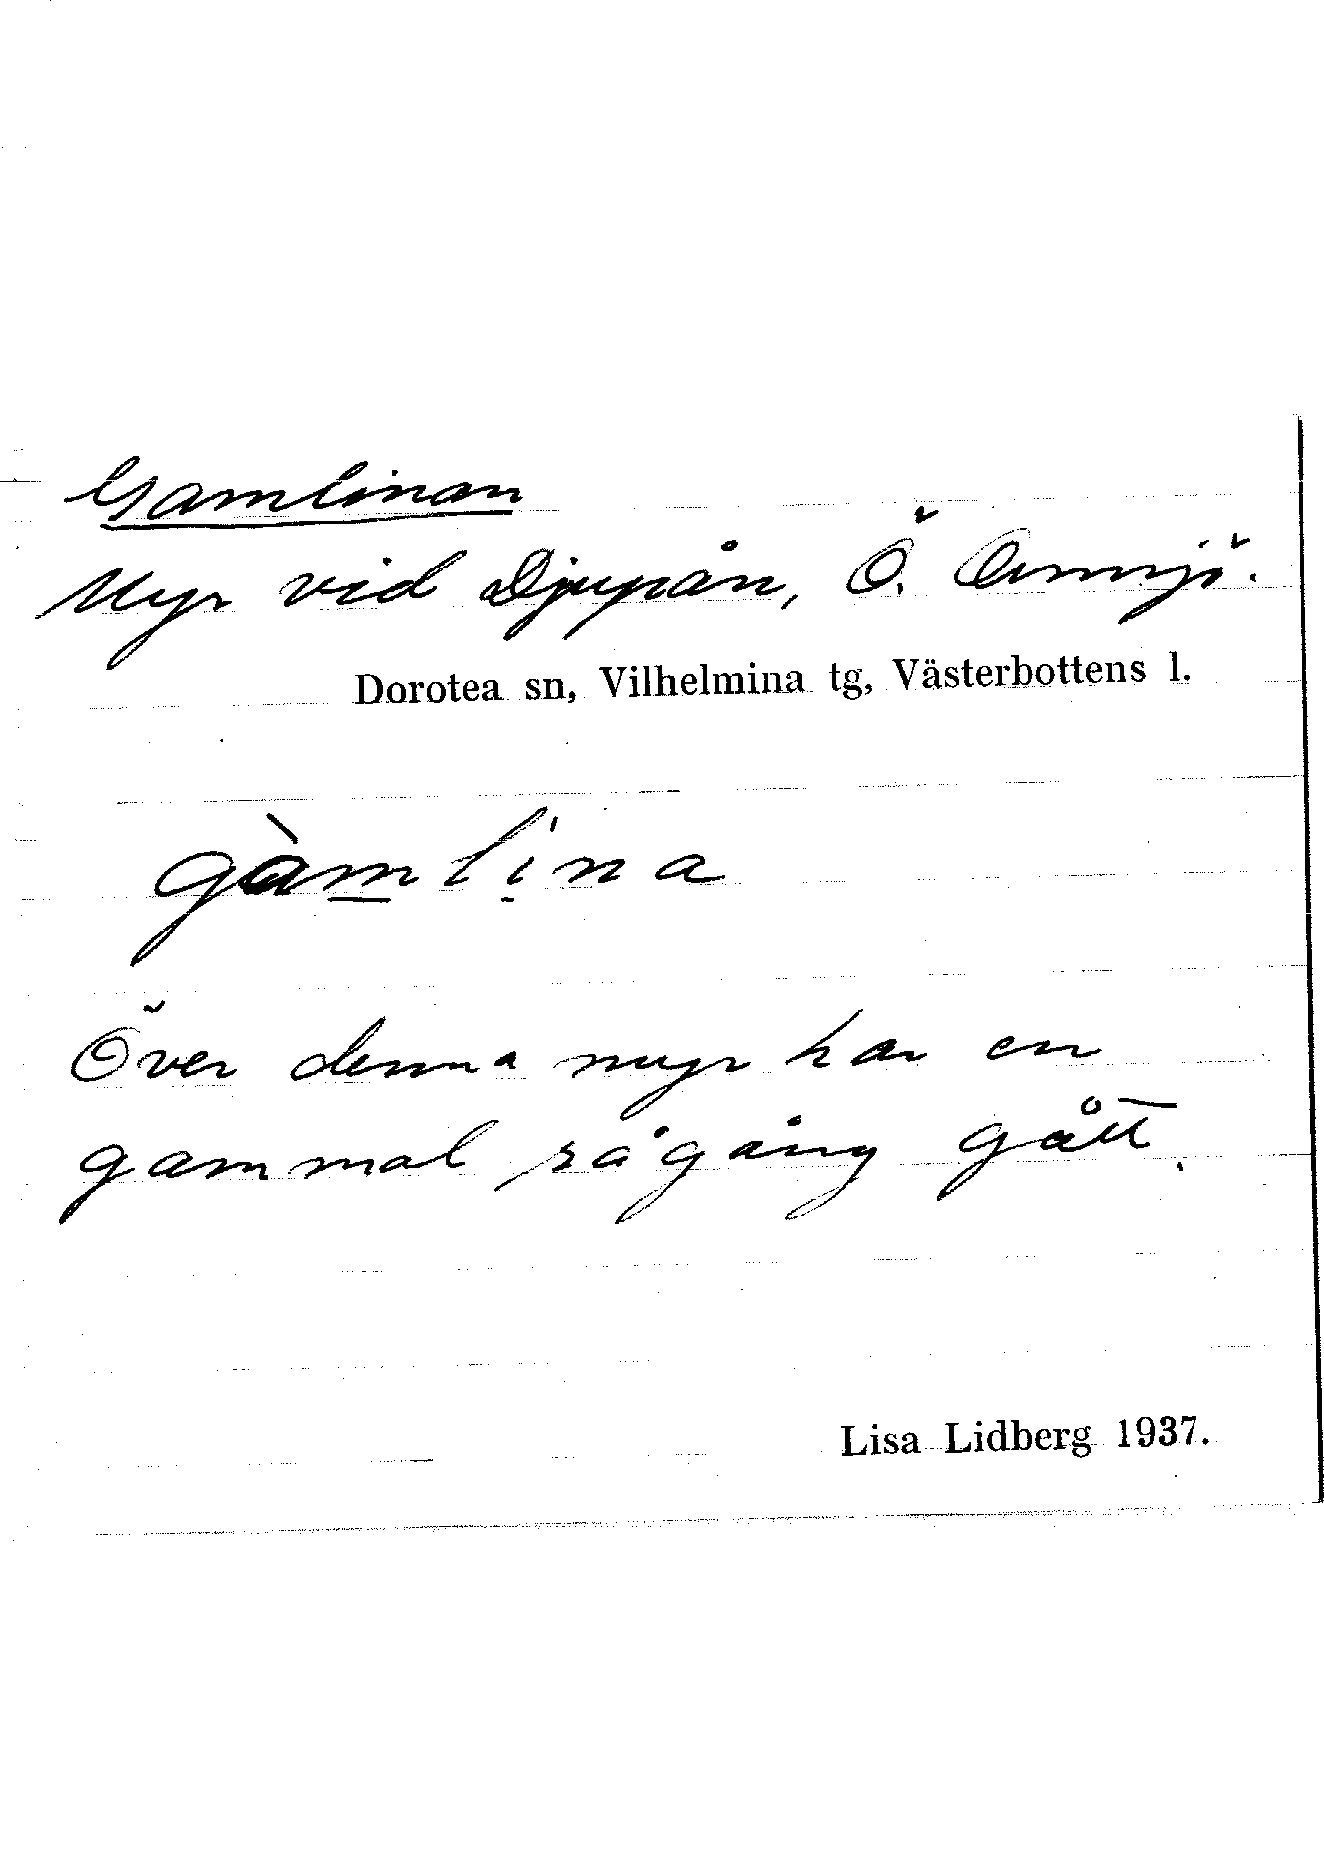 Gamlinan
Myr vid Djupån, Ö. Ormsjö.
Dorotea sn, Vilhelmina tg, Västerbottens l.
gàmlina
Över denna myr har en
gammal rågång gått.
Lisa Lidberg 1937.